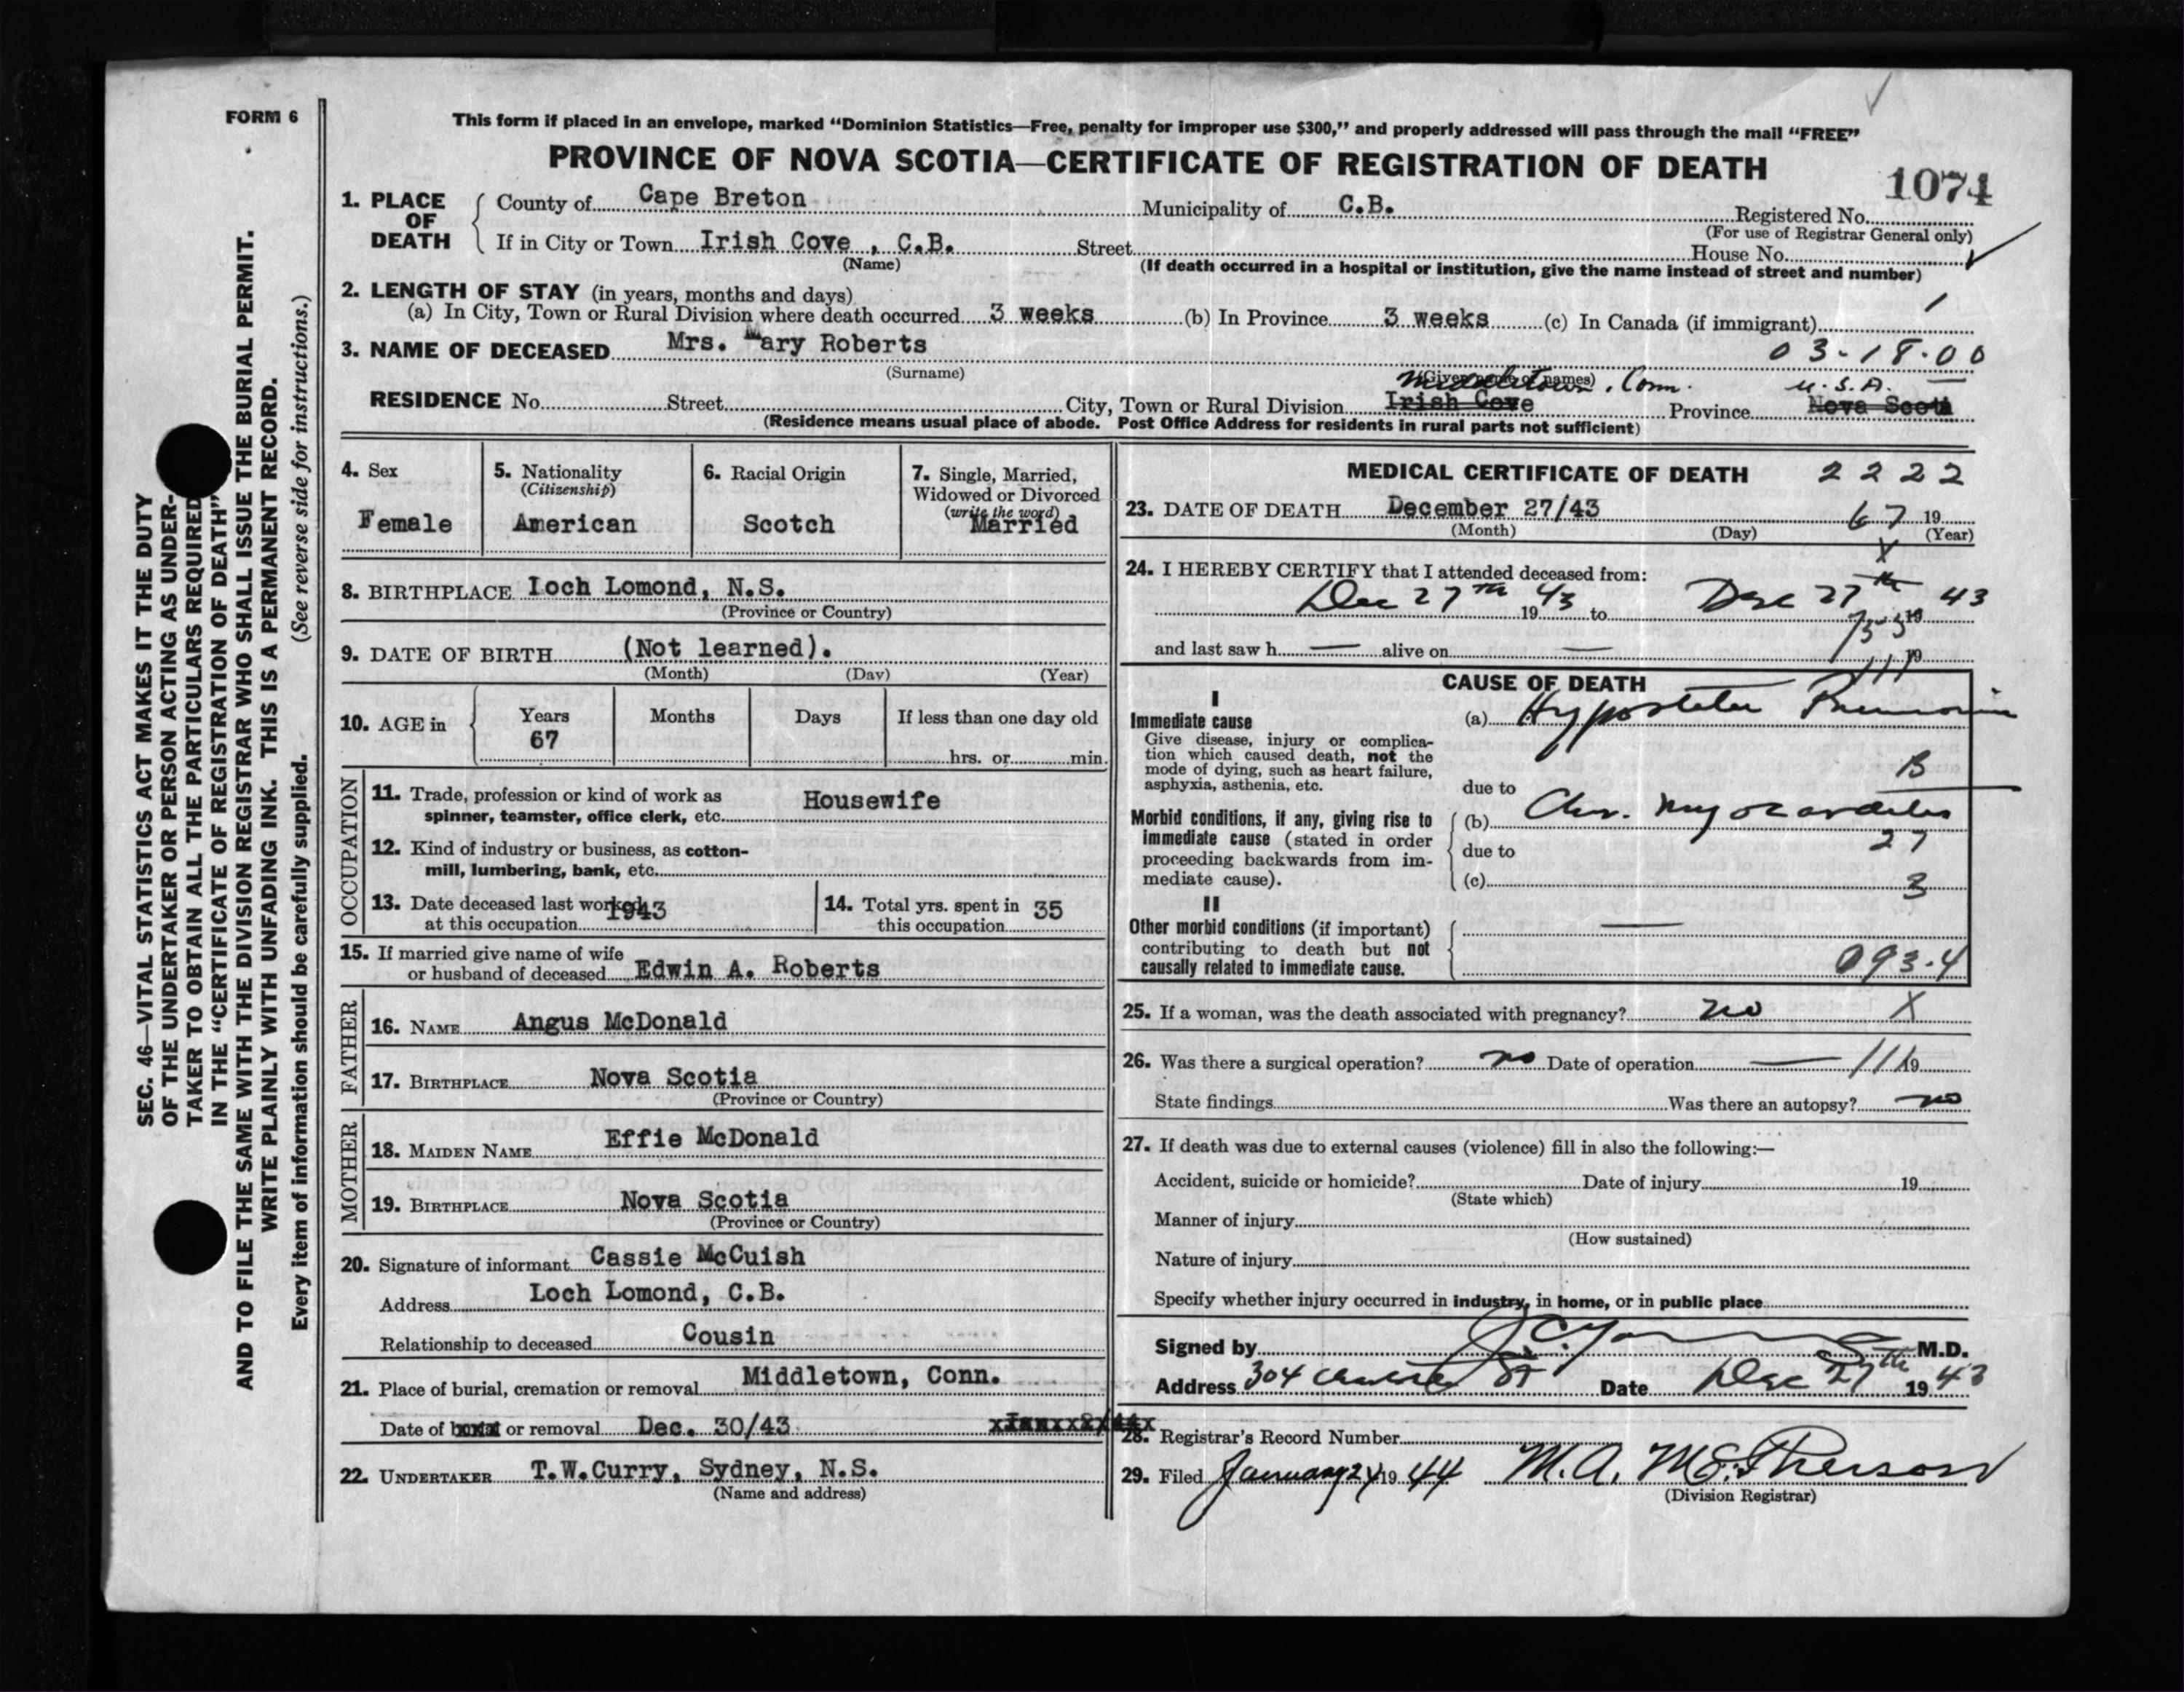 FORM 6
This form if placed in an envelope, marked “Dominion Statistics—Free, penalty for improper use $300,” and properly addressed will pass through the mail “FREE”
PROVINCE OF NOVA SCOTIA—CERTIFICATE OF REGISTRATION OF DEATH
1074
1. PLACE OF DEATH
County of Cape Breton Municipality of C.B. Registered No.
(For use of Registrar General only)
If in City or Town Irish Cove, C.B. Street House No.
(Name) (If death occurred in a hospital or institution, give the name instead of street and number)
2. LENGTH OF STAY (in years, months and days)
(a) In City, Town or Rural Division where death occurred 3 weeks (b) In Province 3 weeks (c) In Canada (if immigrant)
3. NAME OF DECEASED Mrs. Mary Roberts 03-18-00
(Surname) (Given name of names)
Middletown, Conn. U.S.A.
RESIDENCE No. Street City, Town or Rural Division Irish Cove Province Nova Scoti
(Residence means usual place of abode. Post Office Address for residents in rural parts not sufficient)
4. Sex
Female
5. Nationality
(Citizenship)
American
6. Racial Origin
Scotch
7. Single, Married,
Widowed or Divorced
(write the word)
Married
8. BIRTHPLACE Loch Lomond, N.S.
(Province or Country)
9. DATE OF BIRTH (Not learned).
(Month) (Day) (Year)
10. AGE in Years Months Days If less than one day old
67 hrs. or min.
OCCUPATION
11. Trade, profession or kind of work as
spinner, teamster, office clerk, etc. Housewife
12. Kind of industry or business, as cotton-
mill, lumbering, bank, etc.
13. Date deceased last worked
at this occupation 1943
14. Total yrs. spent in
this occupation 35
15. If married give name of wife
or husband of deceased Edwin A. Roberts
FATHER
16. NAME Angus McDonald
17. BIRTHPLACE Nova Scotia
(Province or Country)
MOTHER
18. MAIDEN NAME Effie McDonald
19. BIRTHPLACE Nova Scotia
(Province or Country)
20. Signature of informant Cassie McCuish
Address Loch Lomond, C.B.
Relationship to deceased Cousin
21. Place of burial, cremation or removal Middletown, Conn.
Date of or removal Dec. 30/43
22. UNDERTAKER T.W.Curry, Sydney, N.S.
(Name and address)
MEDICAL CERTIFICATE OF DEATH 2222
23. DATE OF DEATH December 27/43 67 19
(Month) (Day) (Year)
X
24. I HEREBY CERTIFY that I attended deceased from:
Dec 27th 19 43 to Dec 27th 19 43
and last saw h — alive on — 19
CAUSE OF DEATH
I
Immediate cause
Give disease, injury or complica-
tion which caused death, not the
mode of dying, such as heart failure,
asphyxia, asthenia, etc.
(a)
B
due to
Morbid conditions, if any, giving rise to
immediate cause (stated in order
proceeding backwards from im-
mediate cause).
(b) Chr. Myocarditis
27
due to
(c) 3
II
Other morbid conditions (if important)
contributing to death but not
causally related to immediate cause.
—
093-4
25. If a woman, was the death associated with pregnancy? no X
26. Was there a surgical operation? no Date of operation — 111 19
State findings Was there an autopsy? no
27. If death was due to external causes (violence) fill in also the following:—
Accident, suicide or homicide? Date of injury 19
(State which)
Manner of injury
(How sustained)
Nature of injury
Specify whether injury occurred in industry, in home, or in public place
Signed by M.D.
Address 304 St Date Dec 27th 19 43
28. Registrar's Record Number
29. Filed January 24 19 44 M.A. McPherson
(Division Registrar)
SEC. 46—VITAL STATISTICS ACT MAKES IT THE DUTY
OF THE UNDERTAKER OR PERSON ACTING AS UNDER-
TAKER TO OBTAIN ALL THE PARTICULARS REQUIRED
IN THE “CERTIFICATE OF REGISTRATION OF DEATH”
AND TO FILE THE SAME WITH THE DIVISION REGISTRAR WHO SHALL ISSUE THE BURIAL PERMIT.
WRITE PLAINLY WITH UNFADING INK. THIS IS A PERMANENT RECORD.
Every item of information should be carefully supplied. (See reverse side for instructions.)